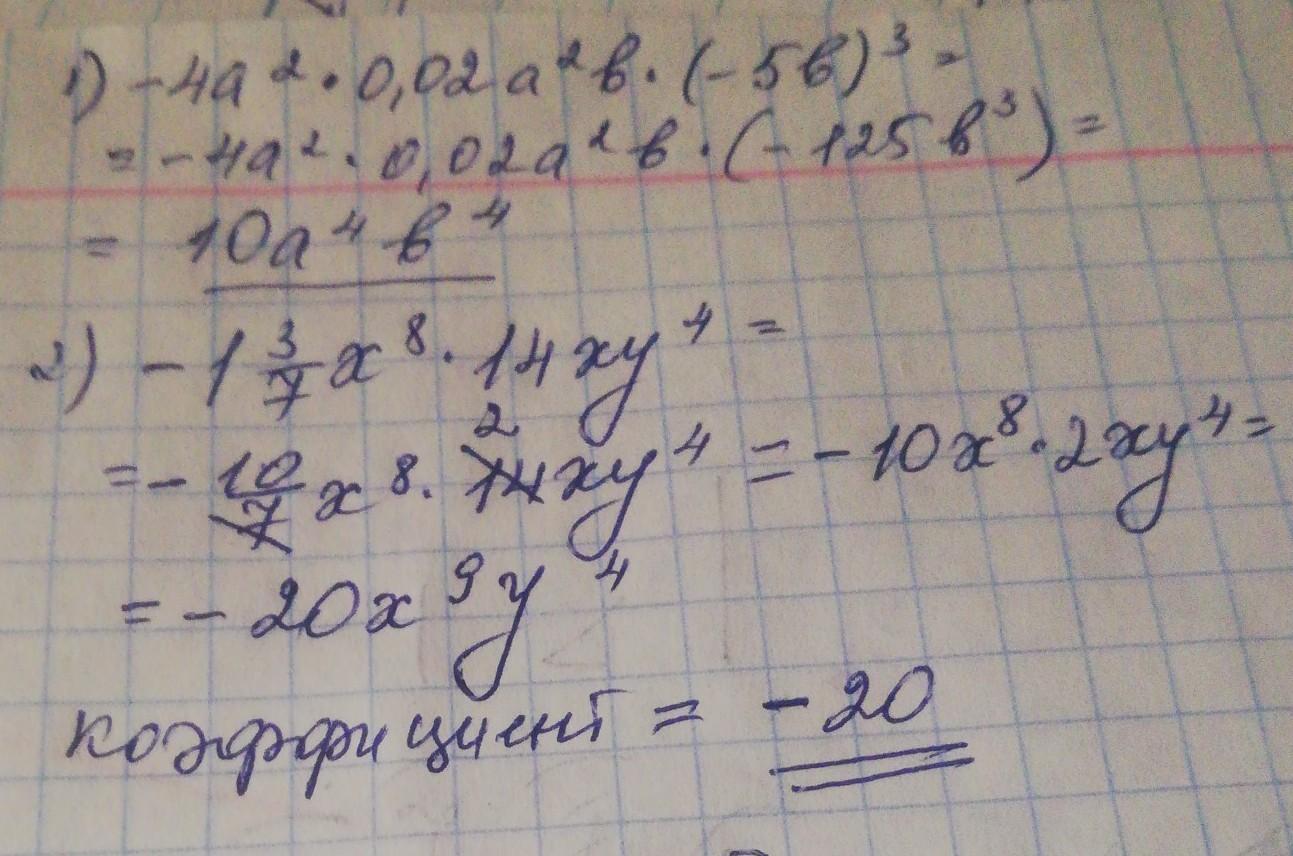 1) -4a² · 0,02a²b · (-5b)³ =
= -4a² · 0,02a²b · (-125b³) =
= 10a⁴b⁴
2) -1 3/7 x⁸ · 14xy⁴ =
= - 10/7 x⁸ · 14xy⁴ = -10x⁸ · 2xy⁴ =
2
= -20x⁹y⁴
коэффициент = -20